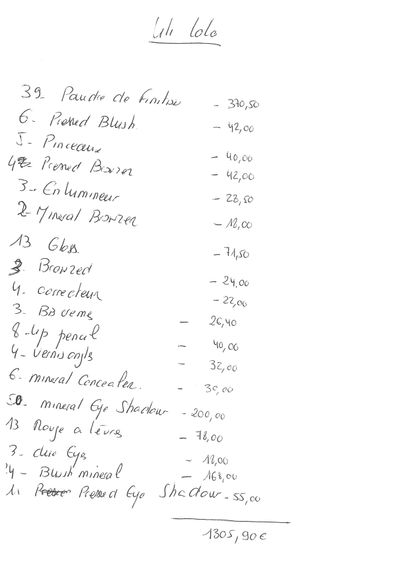 Lili Lolo
39 Poudre de Finition - 370,50
6 - Pressed Blush - 42,00
5 - Pinceaux - 40,00
4 Pressed Bronzer - 42,00
3 - Enlumineur - 28,50
2 - Mineral Bronzer - 18,00
13 Gloss - 71,50
3. Bronzed - 24,00
4. correcteur - 22,00
3. BB - 26,40
8 - Lip pencil - 40,00
4 - vernis ongls - 32,00
6. mineral Concealer. - 30,00
50. mineral Eye Shadow - 200,00
13 Rouge a lèvres - 78,00
3 - duo Eyes - 18,00
4 - Blush mineral - 168,00
11. Pressed Eye Shadow - 55,00
1305,90€